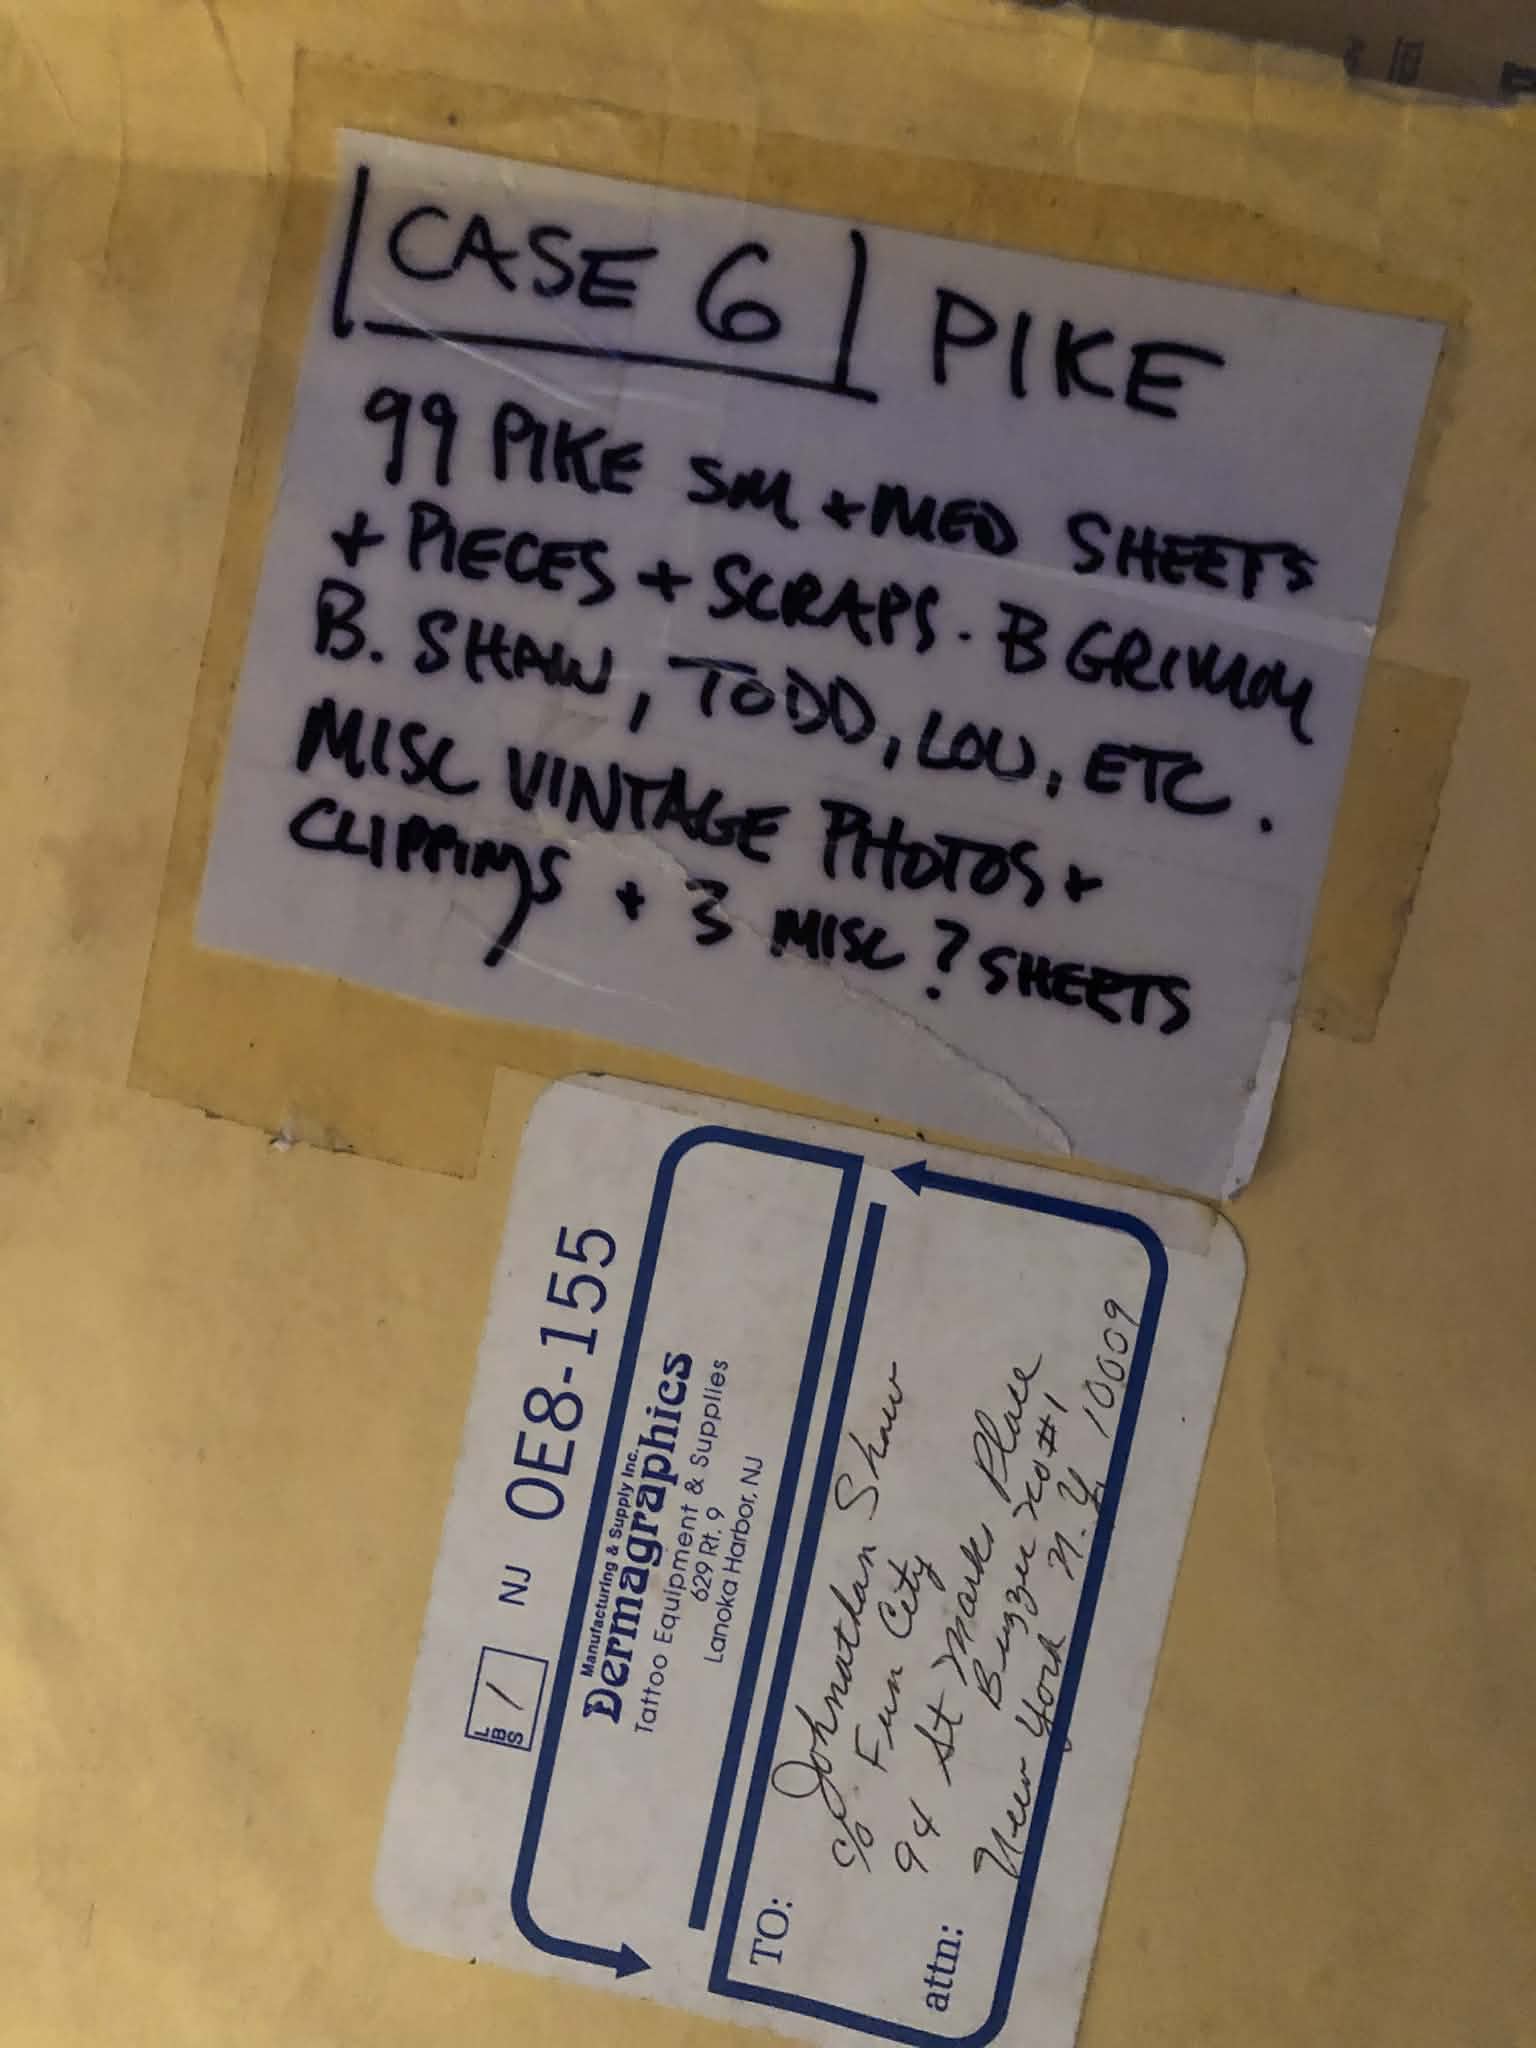 CASE 6 PIKE
99 PIKE SM + MED SHEETS
+ PIECES + SCRAPS. B GRIMM
B. SHAW, TODD, LOU, ETC.
MISC VINTAGE PHOTOS +
CLIPPINGS + 3 MISC ? SHEETS
LBS / NJ OE8-155
Manufacturing & Supply Inc.
Dermagraphics
Tattoo Equipment & Supplies
629 Rt. 9
Lanoka Harbor, NJ
TO: Johnathan Shaw
c/o Fun City
94 St Marks Place
attn: Buzzer no #1
New York N.Y. 10009